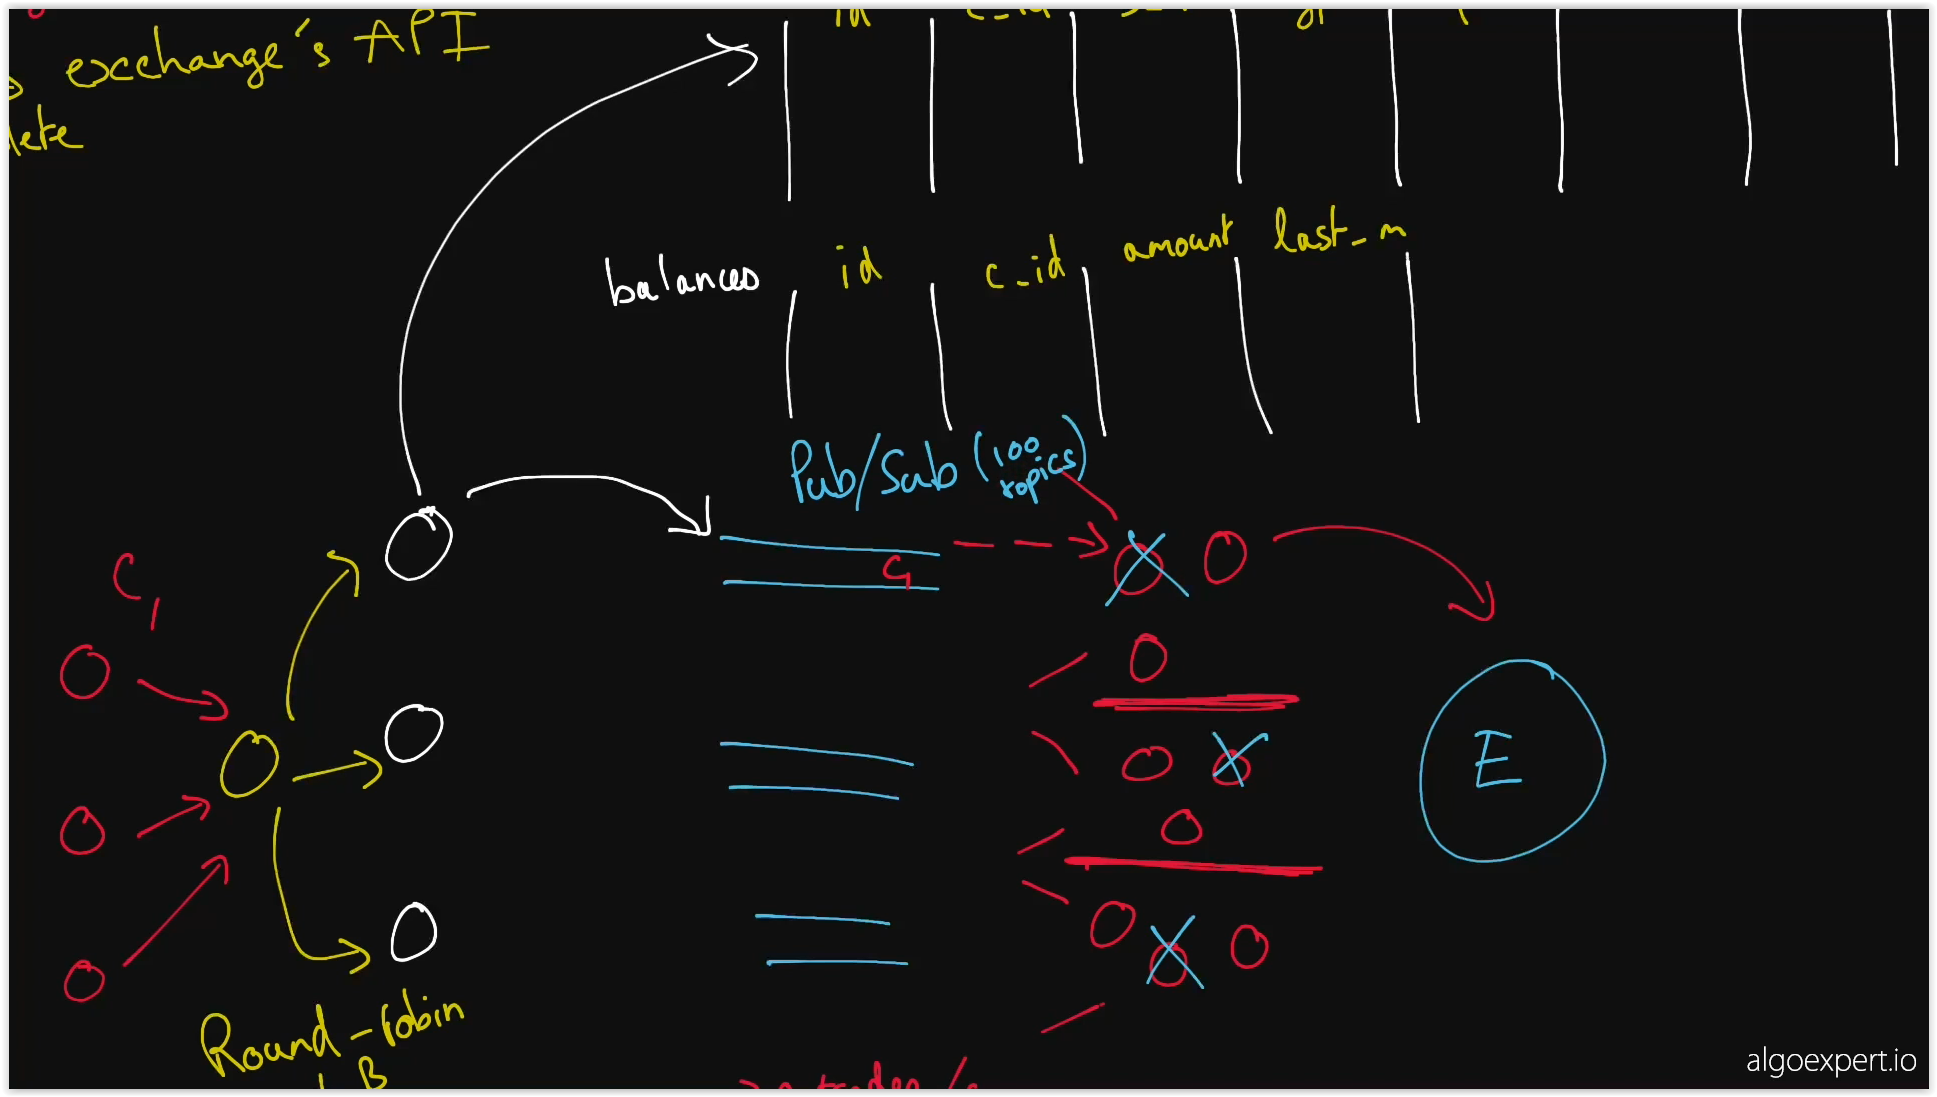 exchange's API
lete
id c_id
balances id c_id amount last_m
Pub/Sub (100 topics)
C1
C1
E
Round-robin
LB
algoexpert.io